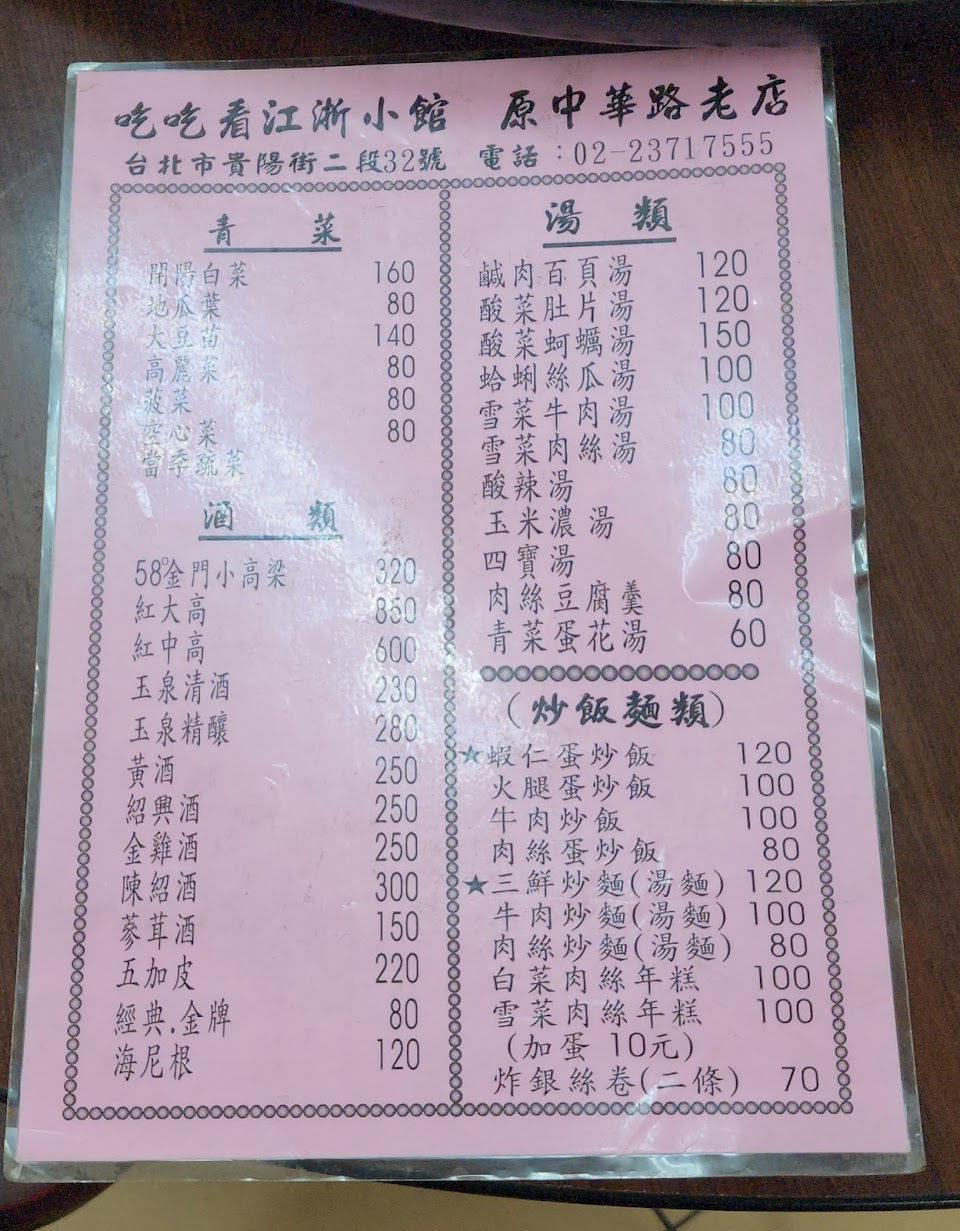 吃吃看江浙小館 原中華路老店
台北市貴陽街二段32號 電話：02-23717555
青 菜
開陽白菜 160
地瓜葉 80
大豆苗 140
高麗菜 80
菠菜 80
空心菜 80
當季蔬菜
酒 類
58°金門小高梁 320
紅大高 850
紅中高 600
玉泉清酒 230
玉泉精釀 280
黃酒 250
紹興酒 250
金雞酒 250
陳紹酒 300
蔘茸酒 150
五加皮 220
經典.金牌 80
海尼根 120
湯 類
鹹肉百頁湯 120
酸菜肚片湯 120
酸菜蚵蠣湯 150
蛤蜊絲瓜湯 100
雪菜牛肉湯 100
雪菜肉絲湯 80
酸辣湯 80
玉米濃湯 80
四寶湯 80
肉絲豆腐羹 80
青菜蛋花湯 60
(炒飯麵類)
★蝦仁蛋炒飯 120
火腿蛋炒飯 100
牛肉炒飯 100
肉絲蛋炒飯 80
★三鮮炒麵(湯麵) 120
牛肉炒麵(湯麵) 100
肉絲炒麵(湯麵) 80
白菜肉絲年糕 100
雪菜肉絲年糕 100
(加蛋 10元)
炸銀絲卷(二條) 70